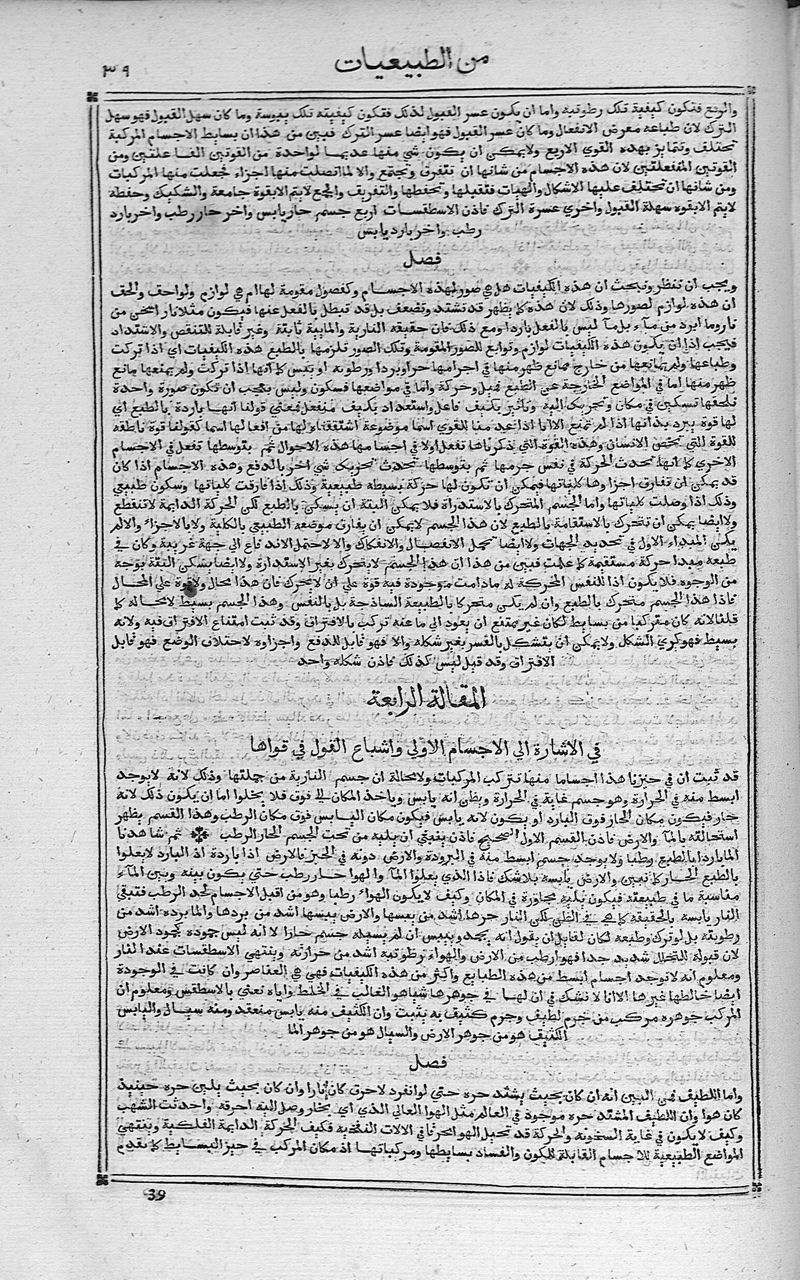 من الطبيعيات
٣٩
والرفع فتكون كيفية تلك رطوبة واما ان يكون عسر القبول لذلك فتكون كيفيته تلك يبوسة وما كان سهل القبول فهو سهل
الترك لان طباعه معرض الانفعال وما كان عسر القبول فهو ايضا عسر الترك فبين من هذا ان بسايط الاجسام المركبة
تختلف وتتمايز بهذه القوي الاربع ولا يمكن ان يكون شي منها عديما لواحدة من القوتين الفاعلتين ومن
القوتين المنفعلتين لان هذه الاجسام من شانها ان تتفرق وتجتمع والا لما اتصلت منها اجزاء فعلت منها المركبات
ومن شانها ان تختلف عليها الاشكال والهيات فتقبلها وتحفظها والتفريف والجمع لا يتم الا بقوة جامعة والتشكيك وحفظه
لا يتم الا بقوة سهلة القبول واخري عسرة الترك فاذن الاسطقسات اربع جسم حار يابس واخر حار رطب واخر بارد
رطب واخر بارد يابس
فصل
ويجب ان ننظر ونبحث ان هذه الكيفيات هل هي صور لهذه الاجسام وكفصول مقومة لها ام هي لوازم ولواحف والحف
ان هذه لوازم لصورها وذلك لان هذه كما يظهر قد تشتد وتضعف بل قد تبطل بالفعل عنها فيكون مثلا نار اسخي من
نار وما ابرد من ماء بل ما ليس بالفعل باردا ومع ذلك فان حقيقه النارية والمايية ثابتة وغير قابلة للتنقص والاشتداد
فيجب اذا ان يكون هذه الكيفيات لوازم وتوابع للصور المقومة وتلك الصور تلزمها بالطبع هذه الكيفيات اي اذا تركت
وطباعها ولم يمانعها من خارج مانع ظهر منها في اجرامها حر او برد او رطوبة او يبس كما انها اذا تركت ولم يمنعها مانع
ظهر منها اما في المواضع الخارجة عن الطبع فميل وحركة واما في مواضعها فسكون وليس يعجب ان تكون صورة واحدة
تلحقها تسكين في مكان وتحريك اليه وتاثير بكيف فاعل واستعداد بكيف منفعل فمعني قولنا انها باردة بالطبع اي
لها قوة يبرد بذاتها اذا لم تمنع الا انا اذا لم نجد منا للقوي اسما موضوعة اشتققناه لها من افعالها اسما كقولنا قوة ناطقة
للقوة التي تخص الانسان وهذه القوة التي ذكرناها تفعل اولا في اجسامها هذه الاحوال ثم بتوسطها تفعل في الاجسام
الاخري كما انها تحدث الحركة في نفس جرمها ثم بتوسطها تحدث تحريك شي اخر بالدفع وهذه الاجسام اذا كان
قد يمكن ان تفارق اجزاوها كلياتها فيمكن ان تكون لها حركة بسيطة طبيعية وذلك اذا فارقت كلياتها وسكون طبيعي
وذلك اذا وصلت كلياتها واما الجسم المتحرك بالاستدارة فلا يمكن البتة ان يسكن بالطبع لكن الحركة الدايمة لا تنقطع
ولا ايضا يمكن ان تتحرك بالاستقامة بالطبع لان هذا الجسم لا يمكن ان يفارق موضعه الطبيعي بالكلية ولا بالاجزاء والا لم
يكن المبداء الاول في تحديد الجهات ولا ايضا تحتمل الانفصال والانفكاك والا لاحتمل الاندفاع الي جهة غريبة وكان في
طبعه مبدا حركة مستقيمة كما علمت فبين من هذا ان هذا الجسم لا يتحرك بغير الاستدارة ولا ايضا يسكن البتة بوجه
من الوجوه فلا يكون اذا للنفس المحركة له ما دامت موجودة فيه قوة علي ان لا يتحرك فان هذا محال ولا قوة علي المحال
فاذا هذا الجسم متحرك بالطبع وان لم يكن متحركا بالطبيعة الساذجة بل بالنفس وهذا الجسم بسيط لا محالة كما
قلنا لانه كان متركبا من بسايط لكان غير ممتنع ان يعود الي ما عنه تركب بالافتراق وقد ثبت امتناع الافتراق فيه ولانه
بسيط فهو كري الشكل ولا يمكن ان يتشكل بالقسر بغير شكله والا فهو قابل للدفع واجزاوه لاختلاف الوضع فهو قابل
الافتراق وقد قيل ليس كذلك فاذن شكله واحد
المقالة الرابعة
في الاشارة الي الاجسام الاولي واشباع القول في قواها
قد ثبت ان في حيزنا هذا اجساما منها تتركب المركبات ولا محالة ان جسم النارية من جملتها وذلك لانه لا يوجد
ابسط منه في الحرارة وهو جسم غاية في الحرارة ويظن انه يابس وياخذ المكان الي فوق فلا يخلوا اما ان يكون ذلك لانه
حار فيكون مكان الحار فوق البارد او يكون لانه يابس فيكون مكان اليابس فوق مكان الرطب وهذا القسم يظهر
استحالته بالما والارض فاذن القسم الاول الصحيح فاذن ينبغي ان يليه من تحت الجسم الحار الرطب ثم شاهدنا
الما باردا بالطبع رطبا ولا يوجد جسم ابسط منه في البرودة والارض دونه في الحيز فالارض اذا باردة اذ البارد لا يعلوا
بالطبع الحار كما تبين والارض يابسة بلا شك فاذا الذي يعلوا الما والهوا حار رطب حتي يكون بينه وبين الماء
مناسبة ما في طبيعته فيكون يليه مجاورة في المكان وكيف لا يكون الهواء رطبا وهو من اقبل الاجسام لحد الرطب فتبقي
النار يابسة بالحقيقة كما هي في الظن لكن النار حرها اشد من يبسها والارض يبسها اشد من بردها والما برده اشد من
رطوبته بل لو ترك وطبعه لكان لقايل ان يقول انه يجمد وييبس ان لم يسيله جسم حار لا انه ليس جموده بجمود الارض
لان قبوله للتحلل شديد جدا فهو ارطب من الارض والهواء رطوبته اشد من حرارته وينتهي الاسطقسات عند النار
ومعلوم انه لا توجد اجسام ابسط من هذه الطبايع واكثر من هذه الكيفيات فهي هي العناصر وان كانت في الوجودة
ايضا خالطها غيرها الا انا لا نشك في ان لها في جوهرها شيا هو الغالب في الخلط واياه نعني بالاسطقس ومعلوم ان
المركب جوهره مركب من جرم لطيف وجرم كثيف به يثبت وان الكثيف منه يابس منعقد ومنه سيال واليابس
الكثيف هو من جوهر الارض والسيال هو من جوهر الما
فصل
واما اللطيف فمن البين انه ان كان بحيث يشتد حره حتي لو انفرد لاحرق كان نارا وان كان بحيث يلين حره حينيذ
كان هوا وان اللطيف المشتد حره موجود في العالم مثل الهوا العالي الذي اي بخار وصل اليه احرقه واحدثت الشهب
وكيف لا يكون في غاية السخونة والحركة قد تحيل الهوا محرقا في الات النفخية فكيف الحركة الدايمة الفلكية وينتهي
المواضع الطبيعية للاجسام القابلة للكون والفساد بسايطها ومركباتها اذ مكان المركب في حيز البسايط كما تقدم
39